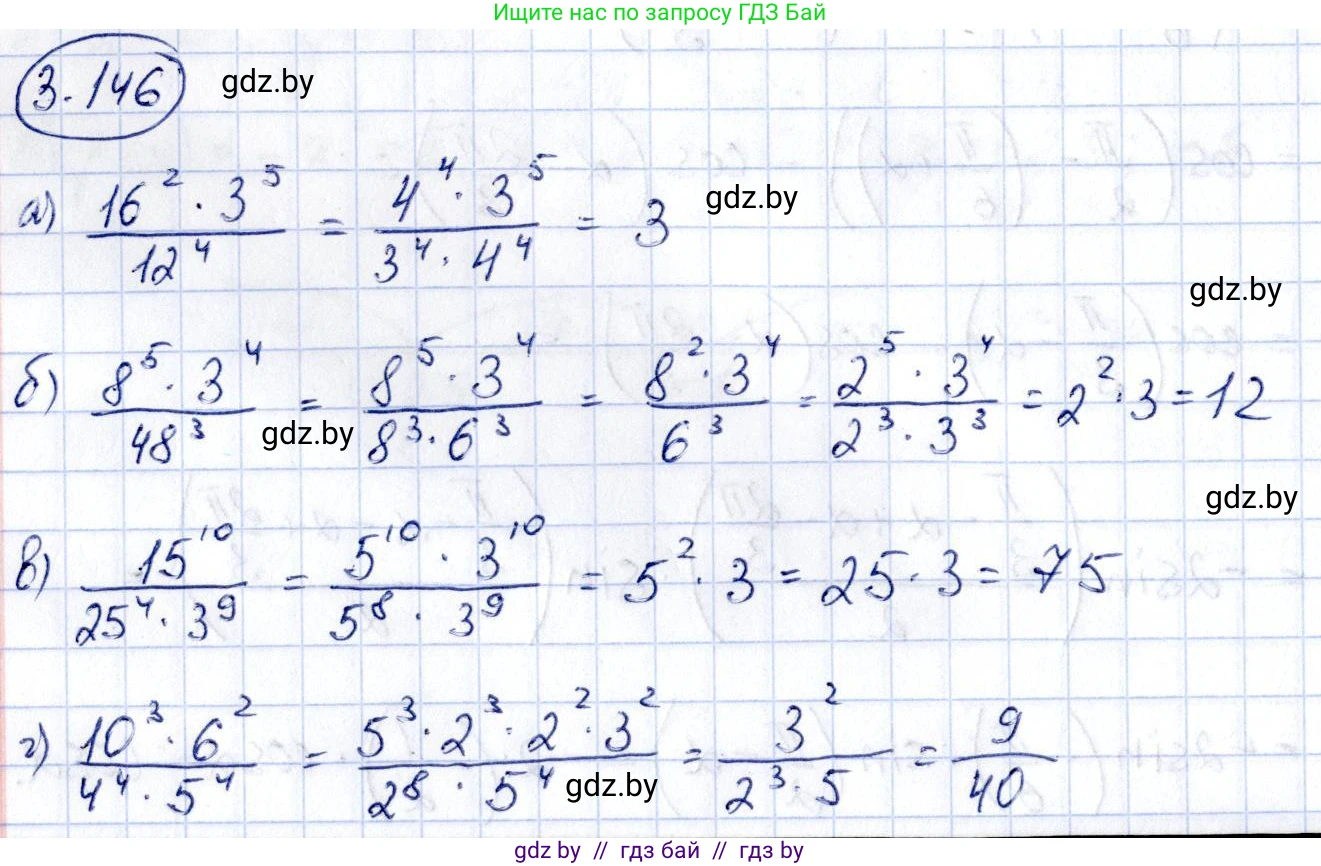 Ищите нас по запросу ГДЗ Бай
3.146 gdz.by
а) 16² · 3⁵ / 12⁴ = 4⁴ · 3⁵ / 3⁴ · 4⁴ = 3 gdz.by
gdz.by
б) 8⁵ · 3⁴ / 48³ = 8⁵ · 3⁴ / 8³ · 6³ = 8² · 3⁴ / 6³ = 2⁵ · 3⁴ / 2³ · 3³ = 2² · 3 = 12
gdz.by
gdz.by
в) 15¹⁰ / 25⁴ · 3⁹ = 5¹⁰ · 3¹⁰ / 5⁸ · 3⁹ = 5² · 3 = 25 · 3 = 75
г) 10³ · 6² / 4⁴ · 5⁴ = 5³ · 2³ · 2² · 3² / 2⁸ · 5⁴ = 3² / 2³ · 5 = 9 / 40
gdz.by
gdz.by // гдз бай // гдз by